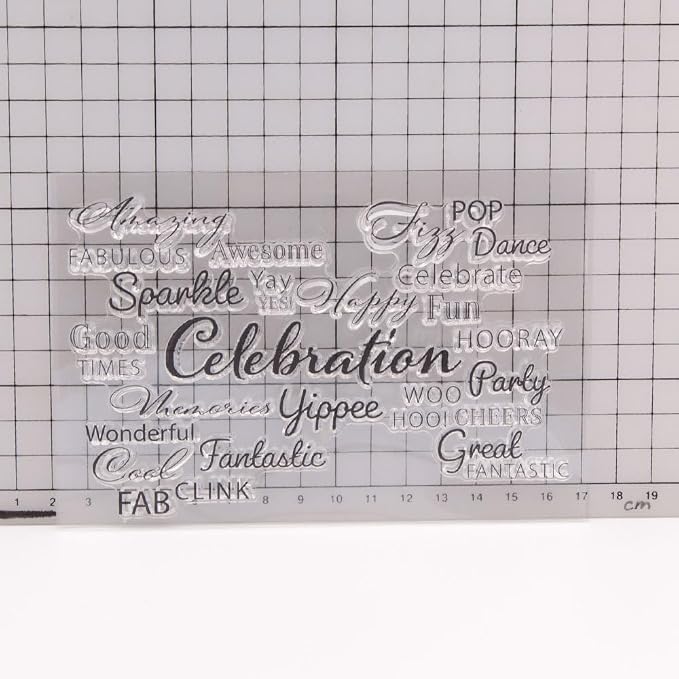 Amazing
Fizz
POP
FABULOUS
Awesome
Dance
Sparkle
Yay
YES!
Happy
Celebrate
Fun
Good
TIMES
Celebration
HOORAY
Memories
Yippee
WOO
HOO!
Party
CHEERS
Wonderful
Cool
Fantastic
Great
FANTASTIC
FAB
CLINK
1 2 3 4 5 6 7 8 9 10 11 12 13 14 15 16 17 18 19
cm